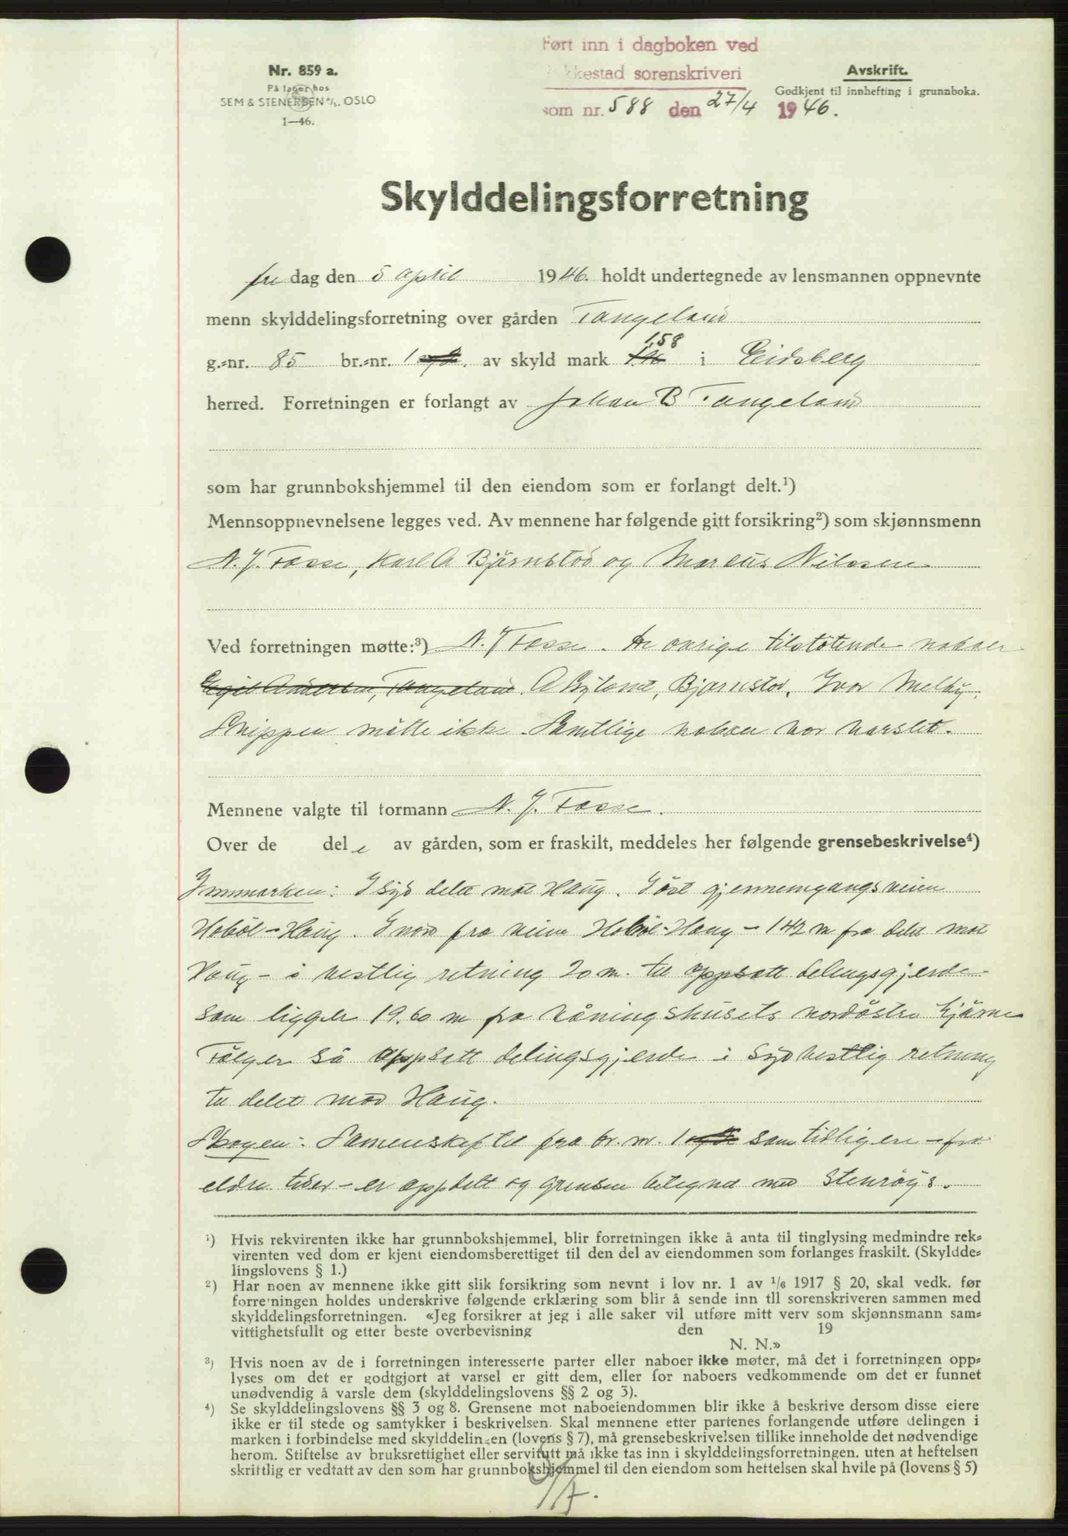 Ført inn i dagboken ved
kkestad sorenskriveri
som nr. 588 den 27/4 1946.
Nr. 859 a.
På lager hos
SEM & STENERSEN A/S. OSLO
1—46.
Avskrift.
Godkjent til innhefting i grunnboka.
Skylddelingsforretning
fre dag den 5 april 1946. holdt undertegnede av lensmannen oppnevnte
menn skylddelingsforretning over gården Tangeland
g.-nr. 85 br.-nr. 1 av skyld mark 1.58 i Eidsberg
herred. Forretningen er forlangt av Johan B Tangeland
som har grunnbokshjemmel til den eiendom som er forlangt delt.¹)
Mennsoppnevnelsene legges ved. Av mennene har følgende gitt forsikring²) som skjønnsmenn
N. J. Fosse, Karl A Bjørnstød og Marcus Nilssen
Ved forretningen møtte:³) N. J Fosse. De øvrige tilstøtende naboer
Egil Andersen, Tangeland, A Byland, Bjørnstød, Ivar Melby,
møtte ikke. Samtlige naboer var varslet.
Mennene valgte til formann N. J. Fosse.
Over de del e av gården, som er fraskilt, meddeles her følgende grensebeskrivelse⁴)
Innmarken: I syd delet mot Haug. I øst gjennemgangsveien
Hobøl - Haug. I nord fra veien Hobøl-Haug - 142 m fra delet mot
Haug - i vestlig retning 20 m. til oppsatt delingsgjerde
som ligger 19.60 m fra våningshusets nordøstre hjørne
Følger så oppsatt delingsgjerde i sydvestlig retning
til delet mod Haug.
Skogen: Sameieskiftet fra br. nr. 1 som tidligere - fra
eldre tider - er oppdelt og grensen betegnet med Stenrøys.
¹) Hvis rekvirenten ikke har grunnbokshjemmel, blir forretningen ikke å anta til tinglysing medmindre rek-
virenten ved dom er kjent eiendomsberettiget til den del av eiendommen som forlanges fraskilt. (Skyldde-
lingslovens § 1.)
²) Har noen av mennene ikke gitt slik forsikring som nevnt i lov nr. 1 av 1/6 1917 § 20, skal vedk. før
forretningen holdes underskrive følgende erklæring som blir å sende inn til sorenskriveren sammen med
skylddelingsforretningen. «Jeg forsikrer at jeg i alle saker vil utføre mitt verv som skjønnsmann sam-
vittighetsfullt og etter beste overbevisning den 19
N. N.»
³) Hvis noen av de i forretningen interesserte parter eller naboer ikke møter, må det i forretningen opp-
lyses om det er godtgjort at varsel er gitt dem, eller for naboers vedkommende om det er funnet
unødvendig å varsle dem (skylddelingslovens §§ 2 og 3).
⁴) Se skylddelingslovens §§ 3 og 8. Grensene mot naboeiendommen blir ikke å beskrive dersom disse eiere
ikke er til stede og samtykker i beskrivelsen. Skal mennene etter partenes forlangende utføre delingen i
marken i forbindelse med skylddelingen (lovens § 7), må grensebeskrivelsen tillike inneholde det nødvendige
herom. Stiftelse av bruksrettighet eller servitutt må ikke tas inn i skylddelingsforretningen, uten at heftelsen
skriftlig er vedtatt av den som har grunnbokshjemmel til den eiendom som heftelsen skal hvile på (lovens § 5)